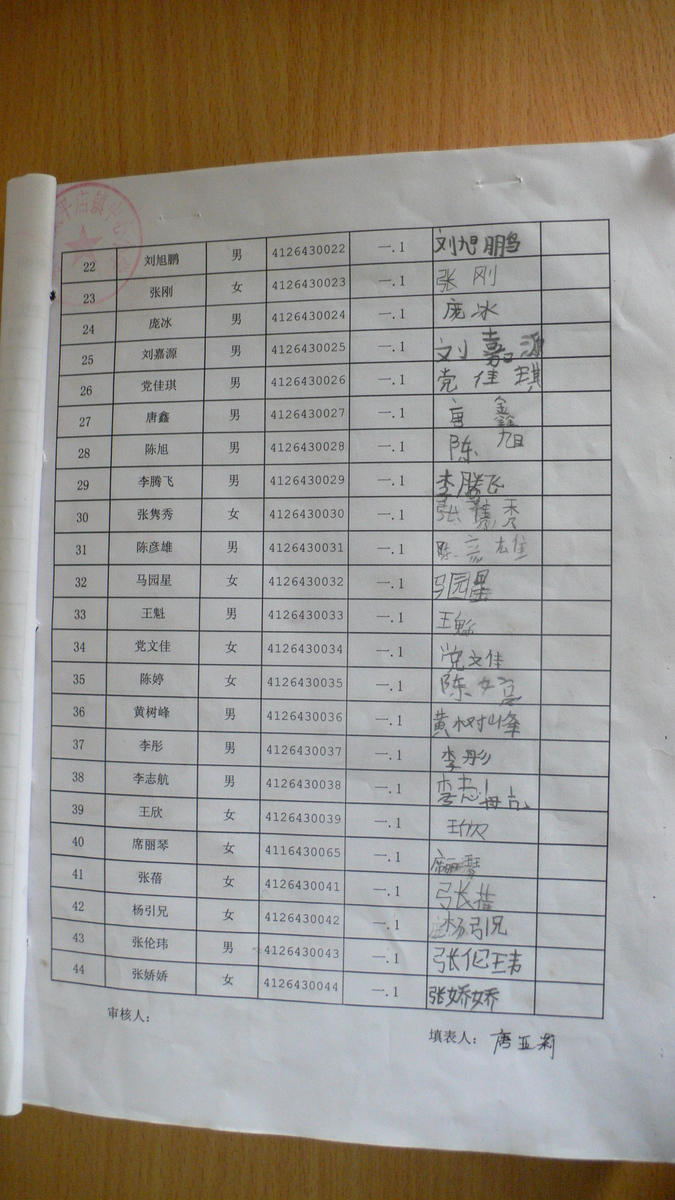 平庙镇中心
22 刘旭鹏 男 4126430022 一.1 刘旭鹏
23 张刚 女 4126430023 一.1 张刚
24 庞冰 男 4126430024 一.1 庞冰
25 刘嘉源 男 4126430025 一.1 刘嘉源
26 党佳琪 男 4126430026 一.1 党佳琪
27 唐鑫 男 4126430027 一.1 唐鑫
28 陈旭 男 4126430028 一.1 陈旭
29 李腾飞 男 4126430029 一.1 李腾飞
30 张隽秀 女 4126430030 一.1 张 秀
31 陈彦雄 男 4126430031 一.1 陈彦雄
32 马园星 女 4126430032 一.1 马园星
33 王魁 男 4126430033 一.1 王魁
34 党文佳 女 4126430034 一.1 党文佳
35 陈婷 女 4126430035 一.1 陈婷
36 黄树峰 男 4126430036 一.1 黄树峰
37 李彤 男 4126430037 一.1 李彤
38 李志航 男 4126430038 一.1 李志
39 王欣 女 4126430039 一.1 王欣
40 席丽琴 女 4116430065 一.1 席丽琴
41 张蓓 女 4126430041 一.1 张蓓
42 杨引兄 女 4126430042 一.1 杨引兄
43 张伦玮 男 4126430043 一.1 张伦玮
44 张娇娇 女 4126430044 一.1 张娇娇
审核人： 填表人：唐亚莉